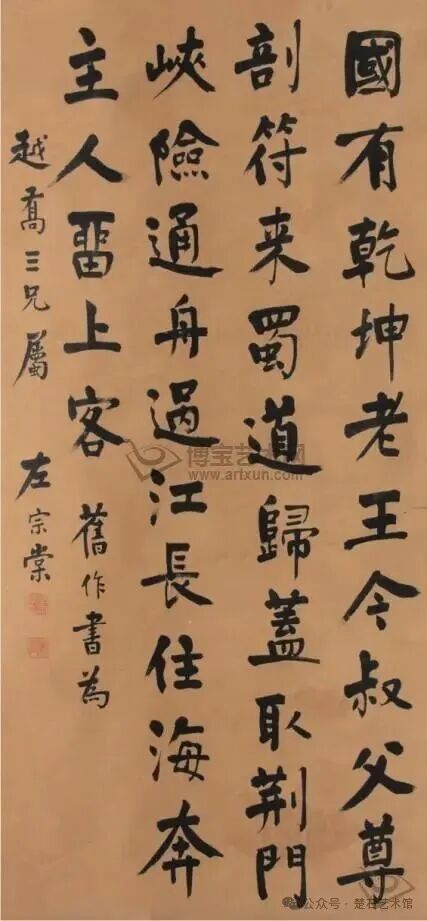 國有乾坤老王今叔父尊
剖符来蜀道歸蓋取荆門
峽險通舟過江長住海奔
主人畱上客 舊作書為
越喬三兄屬 左宗棠
博宝艺术网
www.artxun.com
公众号 · 楚石艺术馆